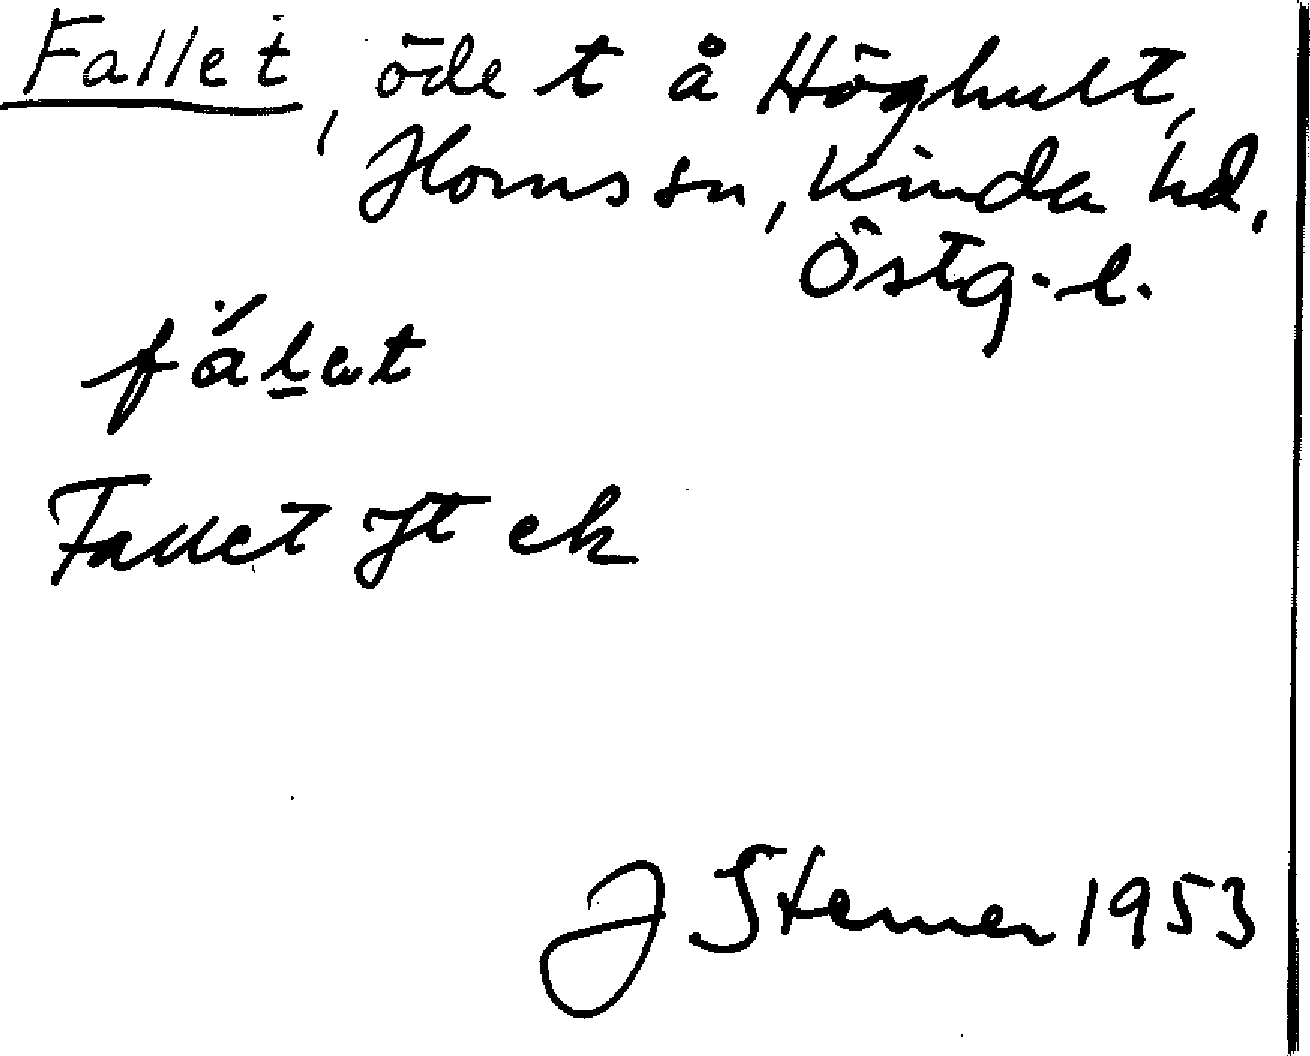 Fallet, öde t å Höghult,
Horns sn, Kinda hd,
Östg. l.
fálet
Fallet Jt ek
J Sterner 1953